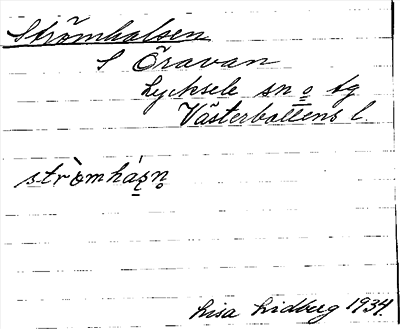 Strömhalsen
S Öravan
Lycksele sn o tg
Västerbottens l.
strömhá̱ṣn̥
Lisa Lidberg 1934.